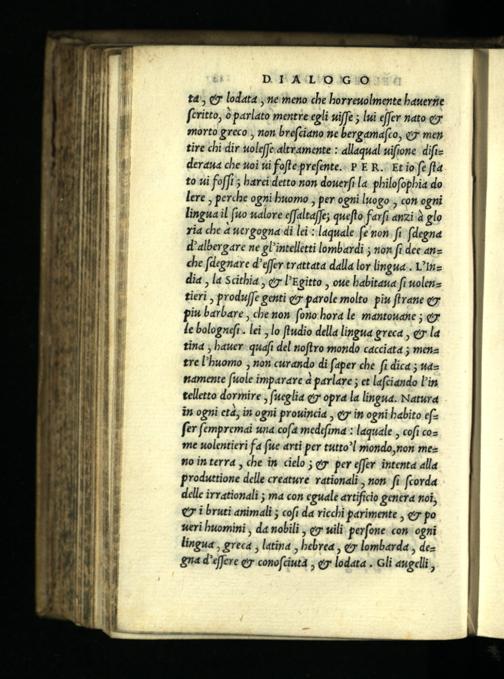 DIALOGO
ta, & lodata, ne meno che horrevolmente haverne
scritto, ò parlato mentre egli visse; lui esser nato &
morto greco, non bresciano ne bergamasco, & men
tire chi dir volesse altramente: allaqual visione disi-
derava che voi vi foste presente. PER. Et io se sta
to vi fossi; harei detto non doversi la philosophia do
lere, perche ogni huomo, per ogni luogo, con ogni
lingua il suo valore essaltasse; questo farsi anzi à glo
ria che a vergogna di lei: laquale se non si sdegna
d'albergare ne gl'intelletti lombardi; non si dee an=
che sdegnare d'esser trattata dalla lor lingua. L'in=
dia, la Scithia, & l'Egitto, ove habitava si volen=
tieri, produsse genti & parole molto piu strane &
piu barbare, che non sono hora le mantovane; &
le bolognesi. lei, lo studio della lingua greca, & la
tina, haver quasi del nostro mondo cacciata; men=
tre l'huomo, non curando di saper che si dica; va=
namente suole imparare à parlare; et lasciando l'in
telletto dormire, sveglia & opra la lingua. Natura
in ogni età, in ogni provincia, & in ogni habito es=
ser sempremai una cosa medesima: laquale, cosi co=
me volentieri fa sue arti per tutto'l mondo, non me=
no in terra, che in cielo; & per esser intenta alla
produttione delle creature rationali, non si scorda
delle irrationali; ma con eguale artificio genera noi,
& i bruti animali; cosi da ricchi parimente, & po
veri huomini, da nobili, & vili persone con ogni
lingua, greca, latina, hebrea, & lombarda, de=
gna d'essere & conosciuta, & lodata. Gli augelli,